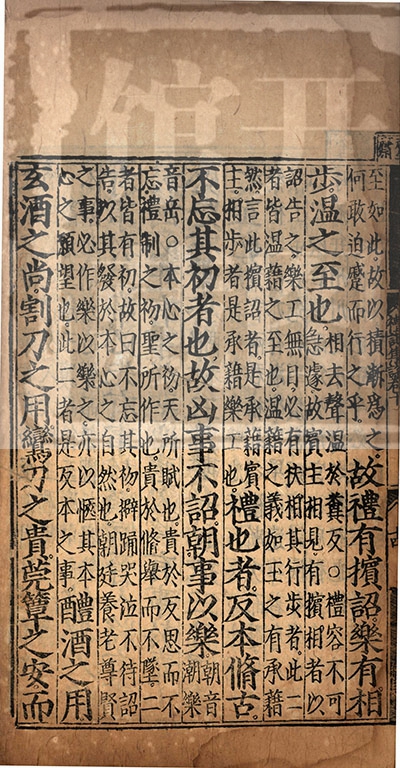 至如此。故以積漸爲之。
何敢迫蹙而行之乎。
故禮有擯詔。樂有相
步。溫之至也。
相去聲溫於糞反○禮容不可
急遽故賓主相見有擯相者以
詔告之。樂工無目必有扶相其行步者。此二
者皆溫藉之至也。溫藉之義如玉之有承藉
然。言此擯詔者是承藉賓
主。相步者是承藉樂工也。
禮也者。反本脩古。
不忘其初者也。故凶事不詔。朝事以樂
朝音
潮樂
音岳○本心之初天所賦也。貴於反思而不
忘。禮制之初。聖所作也。貴於脩舉而不墜。二
者皆有初。故曰不忘其初。擗踊哭泣不待詔
告。以其發於本心之自然也。朝廷養老尊賢
之事。必作樂以樂之。亦以愜其本
心之願望也。此二者是反本之事。
醴酒之用
玄酒之尚。割刀之用。鸞刀之貴。莞簟之安。而